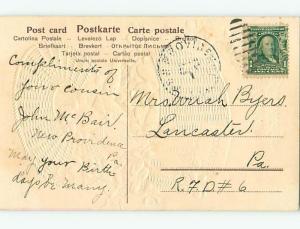 Post card Postkarte Carte postale
Cartolina Postale Levelező Lap Dopisnice
Briefkaart Brevkort ОТКРЫТОЕ ПИСЬМО
Tarjeta postal
Union postale Universelle
Compliments of
your cousin
John McBair
New Providence
Pa
May your Birth
days be many.
PROVIDEN
Mrs Byers,
Lancaster
Pa.
R.F.D # 6